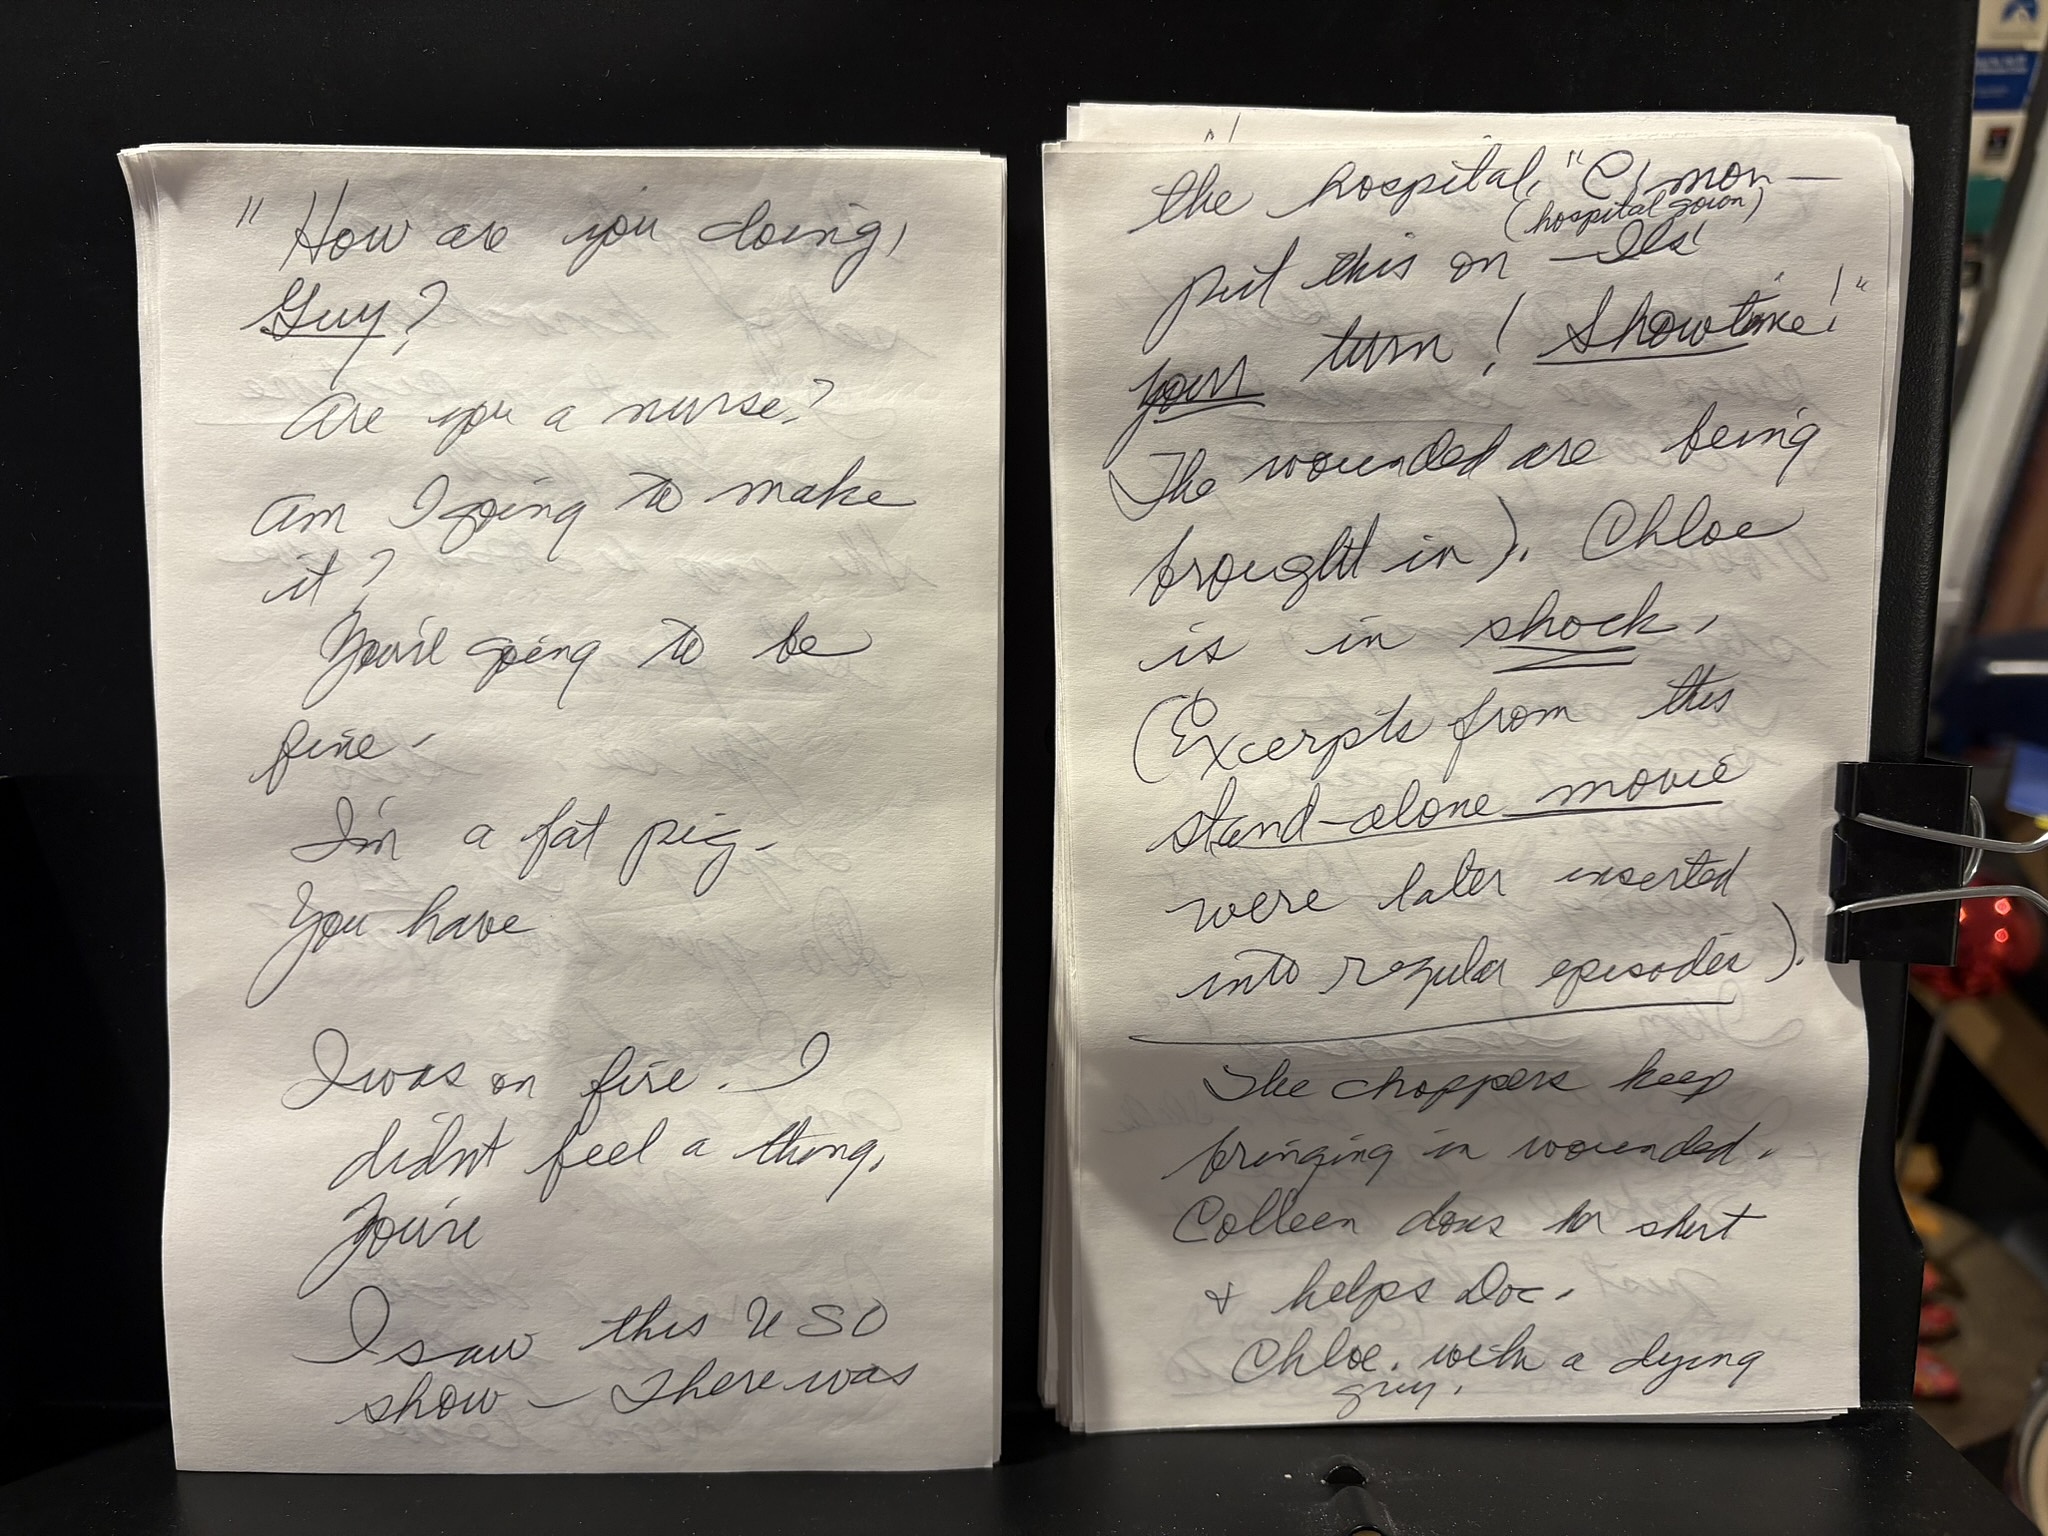 " How are you doing,
Guy?
Are you a nurse?
Am I going to make
it?
You're going to be
fine.
I'm a fat pig.
You have
I was on fire. I
didn't feel a thing.
You're
I saw this USO
show — There was
the hospital, "C'mon —
(hospital gown)
put this on — Its
your turn! Showtime!"
The wounded are being
brought in). Chloe
is in shock.
(Excerpts from this
stand-alone movie
were later inserted
into regular episodes).
The choppers keep
bringing in wounded.
Colleen does her
& helps Doc.
Chloe. with a dying
guy.